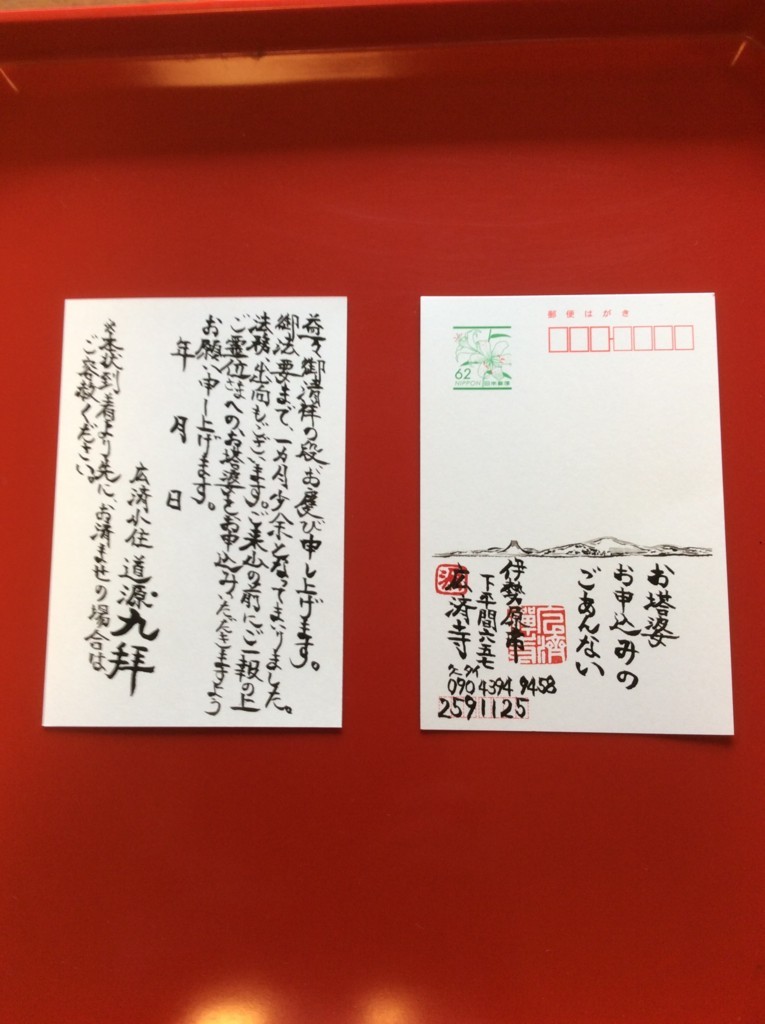 益々御清祥の段お慶び申し上げます。
御法要まで、一カ月少余となってまいりました。
法務出向もございます。ご来山の前にご一報の上
ご霊位さまへのお塔婆をお申込みいただきますよう
お願い申し上げます。
年 月 日
広済小住 道源九拝
※本状到着より先に、お済ませの場合は
ご容赦ください。
郵便はがき
62
NIPPON 日本郵便
お塔婆
お申込みの
ごあんない
伊勢原市
下平間六五七
広済寺
ケータイ
090 4394 9458
2591125